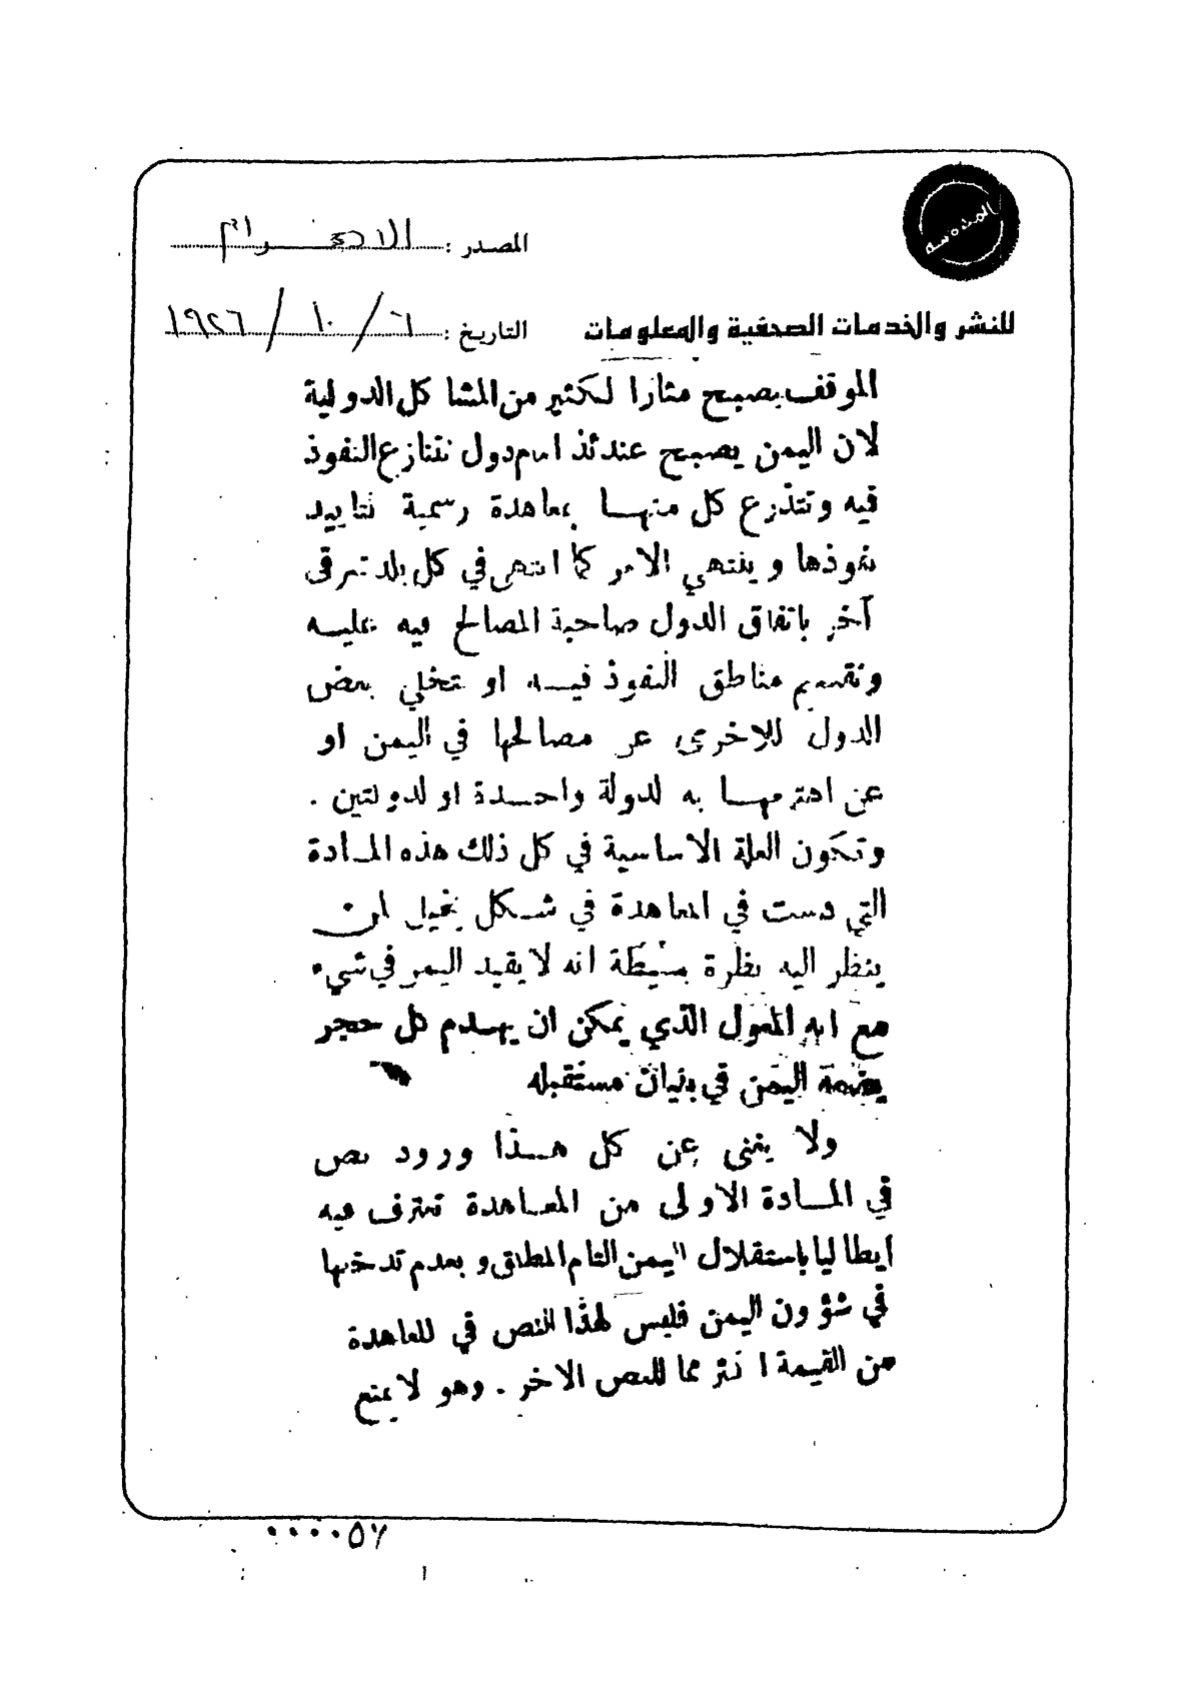 المصدر : الاهرام
التاريخ : ٦ / ١٠ / ١٩٢٦
للنشر والخدمات الصحفية والمعلومات
الموقف يصبح مثارا لكثير من المشاكل الدولية
لان اليمن يصبح عندئذ امام دول تتنازع النفوذ
فيه وتتذرع كل منهـا بمعاهدة رسمية لتأييد
نفوذها وينتهي الامر كما انتهى في كل بلد شرقي
آخر باتفاق الدول صاحبة المصالح فيه عليـه
وتقسيم مناطق النفوذ فيـه او تخلي بعض
الدول للاخرى عن مصالحها في اليمن او
عن اهتمامهـا به لدولة واحـدة او لدولتين .
وتكون العلة الاساسية في كل ذلك هذه المـادة
التي دست في المعاهدة في شـكل يخيل لمن
ينظر اليه نظرة بسيطة انه لا يقيد اليمن في شيء
مع انه المعول الذي يمكن ان يهـدم كل حجر
يضعه اليمن في بنيان مستقبله
ولا يغني عن كل هـذا ورود نص
في المـادة الاولى من المعـاهدة تعترف فيه
ايطاليا باستقلال اليمن التام المطلق وبعدم تدخلها
في شؤون اليمن فليس لهذا النص في المعاهدة
من القيمة اكثر مما للنص الاخر . وهو لا يمنع
٠٠٠٠٥٦